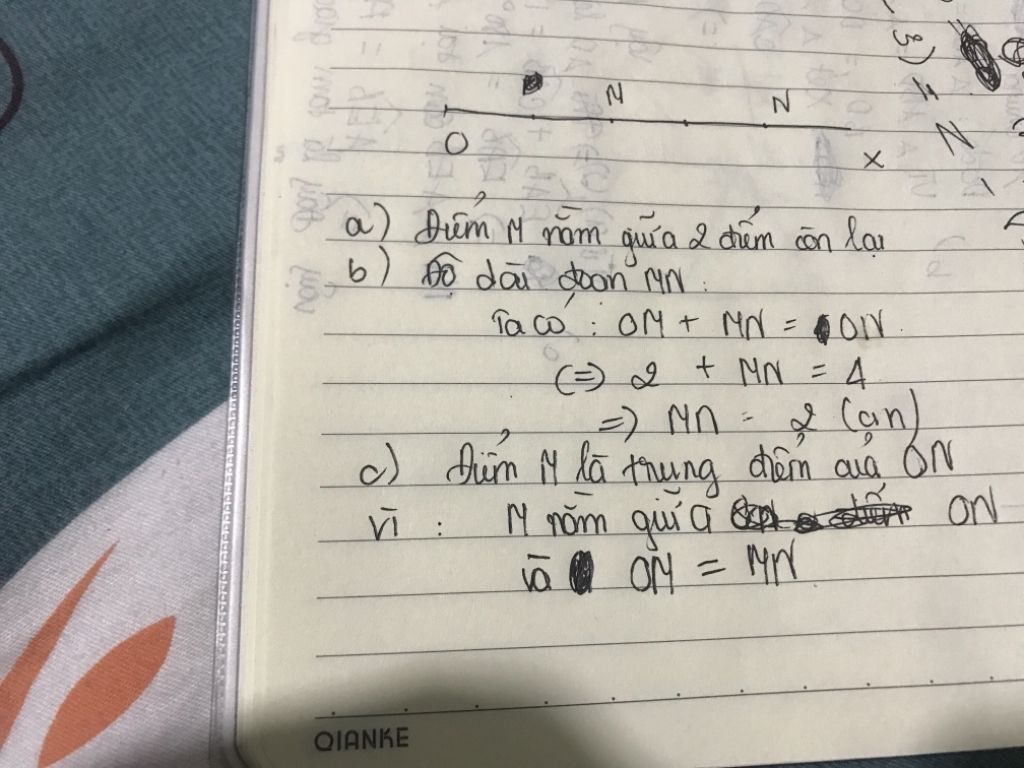 3)
N N
O x
N
a) Điểm M nằm giữa 2 điểm còn lại
b) Độ dài đoạn MN:
Ta có: OM + MN = ON.
(=) 2 + MN = 4
=) MN = 2 (cm)
c) Điểm M là trung điểm của ON
Vì : M nằm giữa ON
và OM = MN
QIANKE